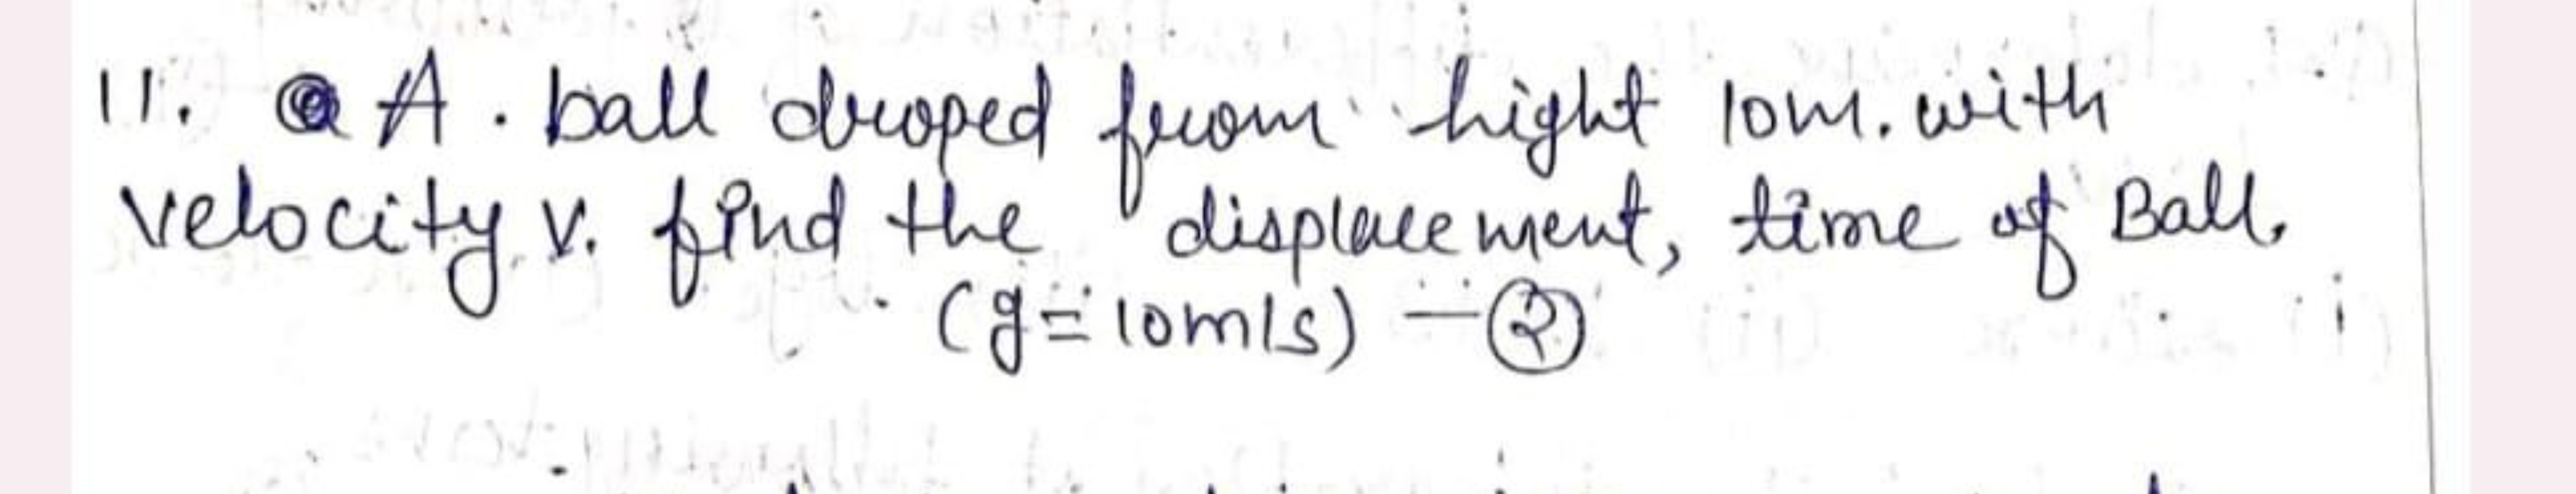 11. A. ball droped from hight 10m. with
velocity v. find the displacement, time of Ball.
(g = 10m/s) - 2